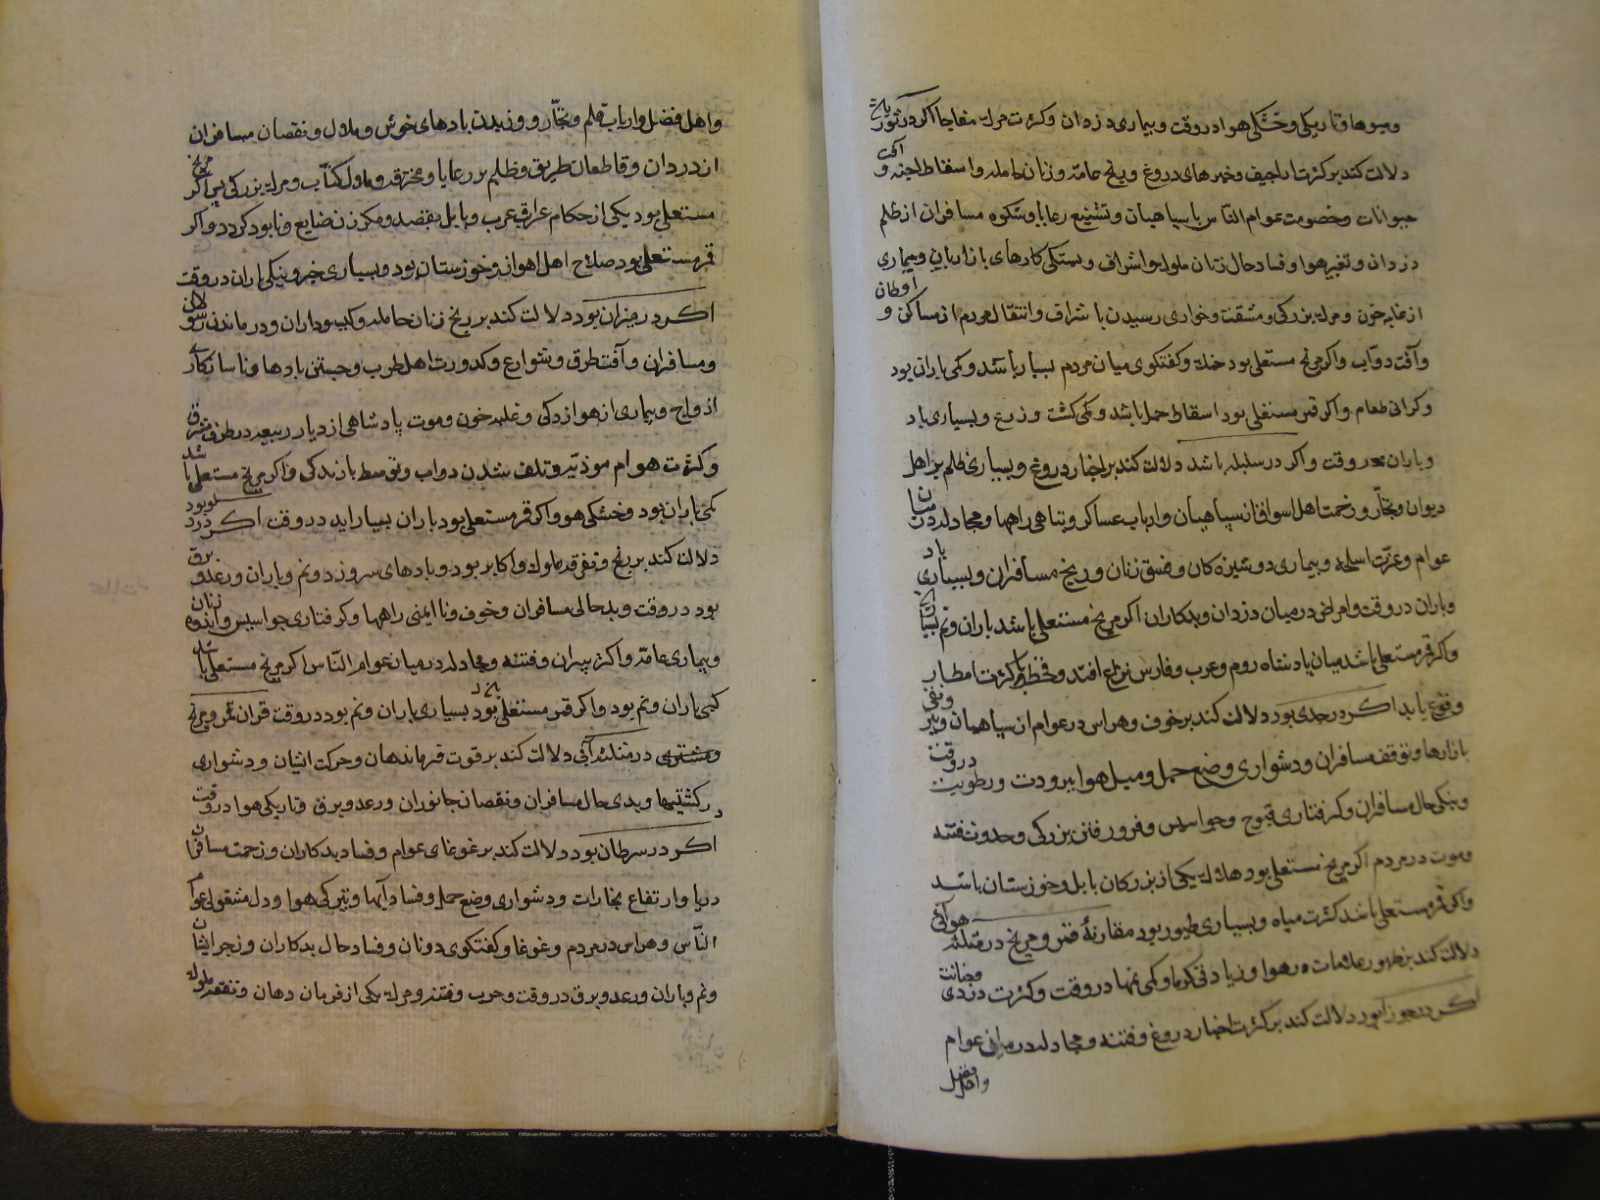 ومیوها و تاریکی و خشکی هوا در وقت و بیماری دزدان و کثرت مرک مفاجا اکر در ثور باشد
دلالت کند بر کثرت اراجیف و خبرهای دروغ و رنج عامه و زنان حامله و اسقاط اجنه و
حیوانات و خصومت عوام الناس با سپاهیان و تشنیع رعایا و شکوه مسافران از ظلم
دزدان و تغیر هوا و فساد حال زنان ملوک و اشراف و بستکی کارهای بازاریان و بیماری
از غلبه خون و مرک بزرکی و مشقت و خواری رسیدن باشراف و انتقال مردم از مساکن و اوطان
وآفت دوآب واکر مریخ مستعلی بود جنک و کفتکوی میان مردم بسیار باشد و کمی باران بود
وکرانی طعام واکر قمر مستعلی بود اسقاط حمل باشد و کمی کشت و زرع و بسیاری باد
وباران در وقت واکر در سنبله باشد دلالت کند بر اخبار دروغ و بسیاری ظلم بر اهل
دیوان و تجّار و زحمت اهل اسواق از سپاهیان و ارباب عساکر و تباهی راهها و مجادله در میان
عوام و عزت اسلحه و بیماری دوشیزه کان و فسق زنان و رنج مسافران و بسیاری باد
وباران در وقت و امراض در میان دزدان و بدکاران اکر مریخ مستعلی باشد باران و نم بسیار
واکر قمر مستعلی باشد میان پادشاه روم و عرب و فارس نزاع افتد و قحط یا کثرت امطار
وقوع یابد اکر در جدی بود دلالت کند بر خوف و هراس در عوام از سپاهیان و
بازارها و توقف مسافران و دشواری وضع حمل و میل هوا ببرودت و رطوبت در وقت
ونیکی حال مسافران و کرفتاری و جواسیس و فرو رفتن بزرکی و حدوث فتنه
وموت در مردم اکر مریخ مستعلی بود هلاک یکی از بزرکان بابل و خوزستان باشد
واکر قمر مستعلی باشد کثرت میاه و بسیاری طیور بود مقارنهٔ قمر و مریخ در مثلثه هوائی
دلالت کند بر ظهور علامات در هوا و زیادتی کرما و کمی نمها در وقت و کثرت دزدی وخیانت
اکر در جوزا بود دلالت کند بر کثرت اخبار دروغ و فتنه و مجادله در میان عوام
واهل فضل
واهل فضل و ارباب قلم و تجّار و وزیدن بادهای خوش و ملال و نقصان مسافران
از دزدان و قاطعان طریق و ظلم بر رعایا و محترفه و ملال کتّاب و مرک بزرکی پس اکر مریخ
مستعلی بود یکی از حکام عراق عرب و بابل بقصد و مکر زن ضایع و نابود کردد واکر
قمر مستعلی بود صلاح اهل اهواز و خوزستان بود و بسیاری خیر و نیکی باران در وقت
اکر در میزان بود دلالت کند بر رنج زنان حامله و کیسه داران و درماندن رسولان
ومسافران و آفت طرق و شوارع و کدورت اهل طرب و جستن بادها و ناسازکاری
ازواج و بیماری از هوازدکی و غلبه خون و موت پادشاهی از دیار ربیعه در طرف شرق
وکثرت هوام موذیه و تلف شدن دواب و توسط بازندکی واکر مریخ مستعلی باشد
کمی باران بود و خشکی هوا واکر قمر مستعلی بود باران بسیار اید در وقت اکر در دلو بود
دلالت کند بر رنج و تفرقه ملوک و اکابر بود و بادهای سرد وزد و نم و باران و رعد و برق
بود در وقت و بدحالی مسافران و خوف و ناایمنی راهها و کرفتاری جواسیس و اندوه زنان
وبیماری عامه و اکثر پیران و فتنه و مجادله در میان عوام النّاس اکر مریخ مستعلی باشد
کمی باران و نم بود واکر قمر مستعلی بود بسیاری باران و نم بود در وقت قران قمر و مریخ
ومشتری در مثلثه آبی دلالت کند بر قوت فرماندهان و حرکت ایشان و دشواری
در کشتیها و بدی حال مسافران و نقصان جانوران و رعد و برق و تاریکی هوا در وقت
اکر در سرطان بود دلالت کند بر غوغای عوام و فساد بدکاران و زحمت مسافران
دریا و ارتفاع بخارات و دشواری وضع حمل و فساد آبها و تیرکی هوا و دل مشغولی عوام
النّاس و هراس در مردم و غوغا و کفتکوی دونان و فساد حال بدکاران و زجر ایشان
ونم و باران و رعد و برق در وقت و حرب و فتنه و مرک یکی از فرمان دهان و ملوک